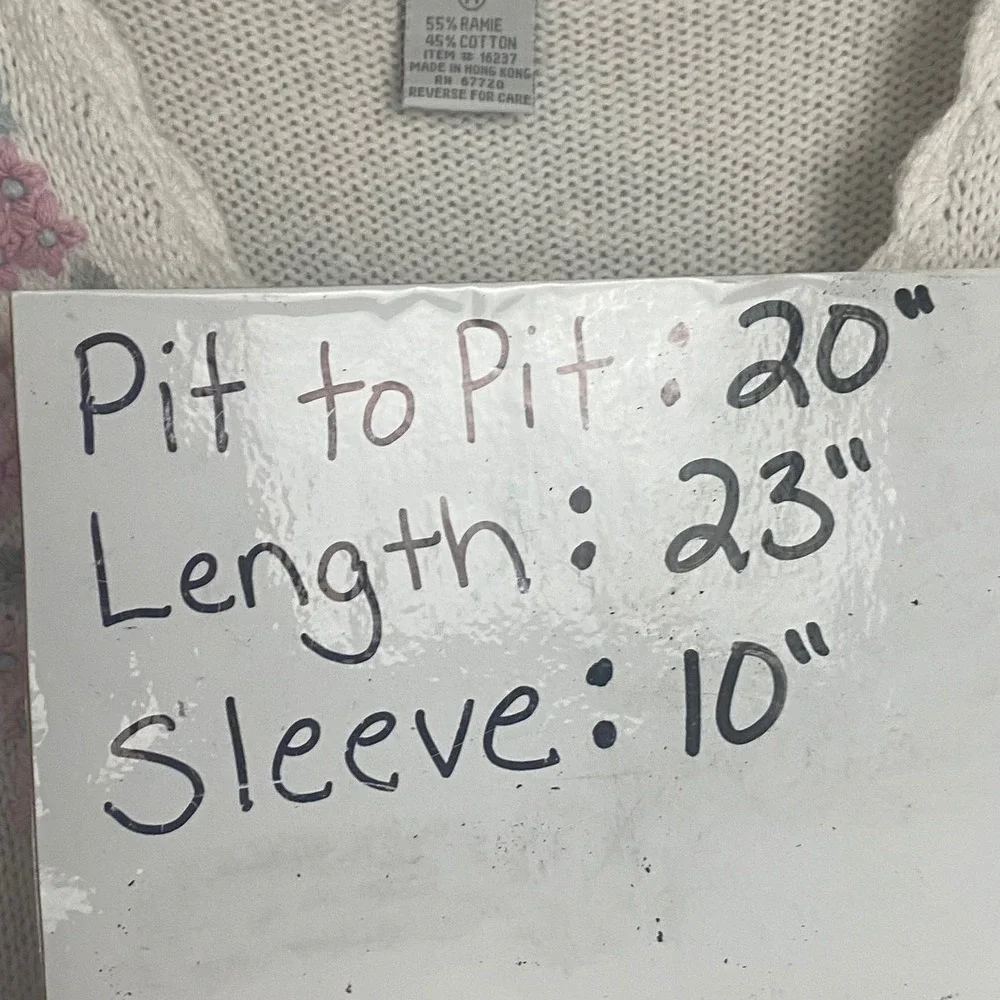 55% RAMIE
45% COTTON
ITEM # 16237
MADE IN HONG KONG
RN 67720
REVERSE FOR CARE
Pit to Pit: 20"
Length: 23"
Sleeve: 10"